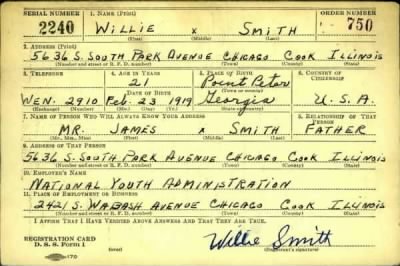 SERIAL NUMBER 1. NAME (Print) ORDER NUMBER
2240 WILLIE x SMITH 750
(First) (Middle) (Last)
2. ADDRESS (Print)
5636 S. SOUTH PARK AVENUE CHICAGO COOK ILLINOIS
(Number and street or R. F. D. number) (Town) (County) (State)
3. TELEPHONE 4. AGE IN YEARS 5. PLACE OF BIRTH 6. COUNTRY OF CITIZENSHIP
21 POINT PETER
WEN. 2910 FEB. 23 1919 GEORGIA U.S.A.
(Exchange) (Number) (Mo.) (Day) (Yr.) (State or country)
7. NAME OF PERSON WHO WILL ALWAYS KNOW YOUR ADDRESS 8. RELATIONSHIP OF THAT PERSON
MR. JAMES x SMITH FATHER
(Mr., Mrs., Miss) (First) (Middle) (Last)
9. ADDRESS OF THAT PERSON
5636 S. SOUTH PARK AVENUE CHICAGO COOK ILLINOIS
(Number and street or R. F. D. number) (Town) (County) (State)
10. EMPLOYER'S NAME
NATIONAL YOUTH ADMINISTRATION
11. PLACE OF EMPLOYMENT OR BUSINESS
2421 S. WABASH AVENUE CHICAGO COOK ILLINOIS
(Number and street or R. F. D. number) (Town) (County) (State)
I AFFIRM THAT I HAVE VERIFIED ABOVE ANSWERS AND THAT THEY ARE TRUE.
REGISTRATION CARD Willie Smith
D. S. S. FORM 1 (Registrant's signature)
170